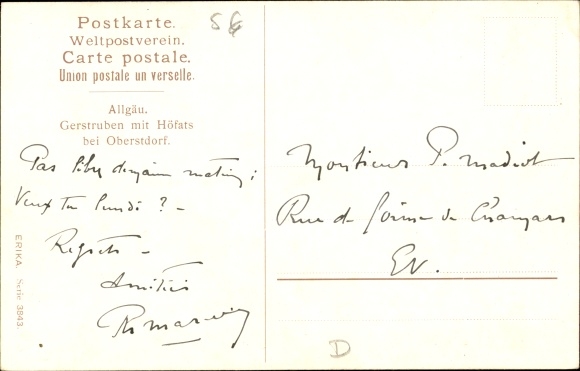 Postkarte.
Weltpostverein.
Carte postale.
Union postale un verselle.
Allgäu.
Gerstruben mit Höfats
bei Oberstdorf.
Pas libre demain matin;
Veux tu lundi ? -
Regrets -
Amitiés
ERIKA. Serie 3843.
Monsieur P. Madiot
Rue de
EV.
D